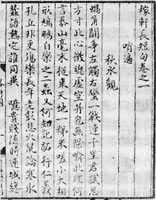 稼軒長短句卷之一
哨遍
秋水觀
蝸角鬥爭左觸右蠻一戰連千里君試思
方寸此心微總虛空并包無際喻此理何
言泰山毫末從來天地一稊米嗟小大相
形鳩鵬自樂之二蟲又何知記跖行仁義
孔丘非更殤樂長年老彭悲火鼠論寒冰
蠶語熱定誰同異 噫貴賤隨時連城纔